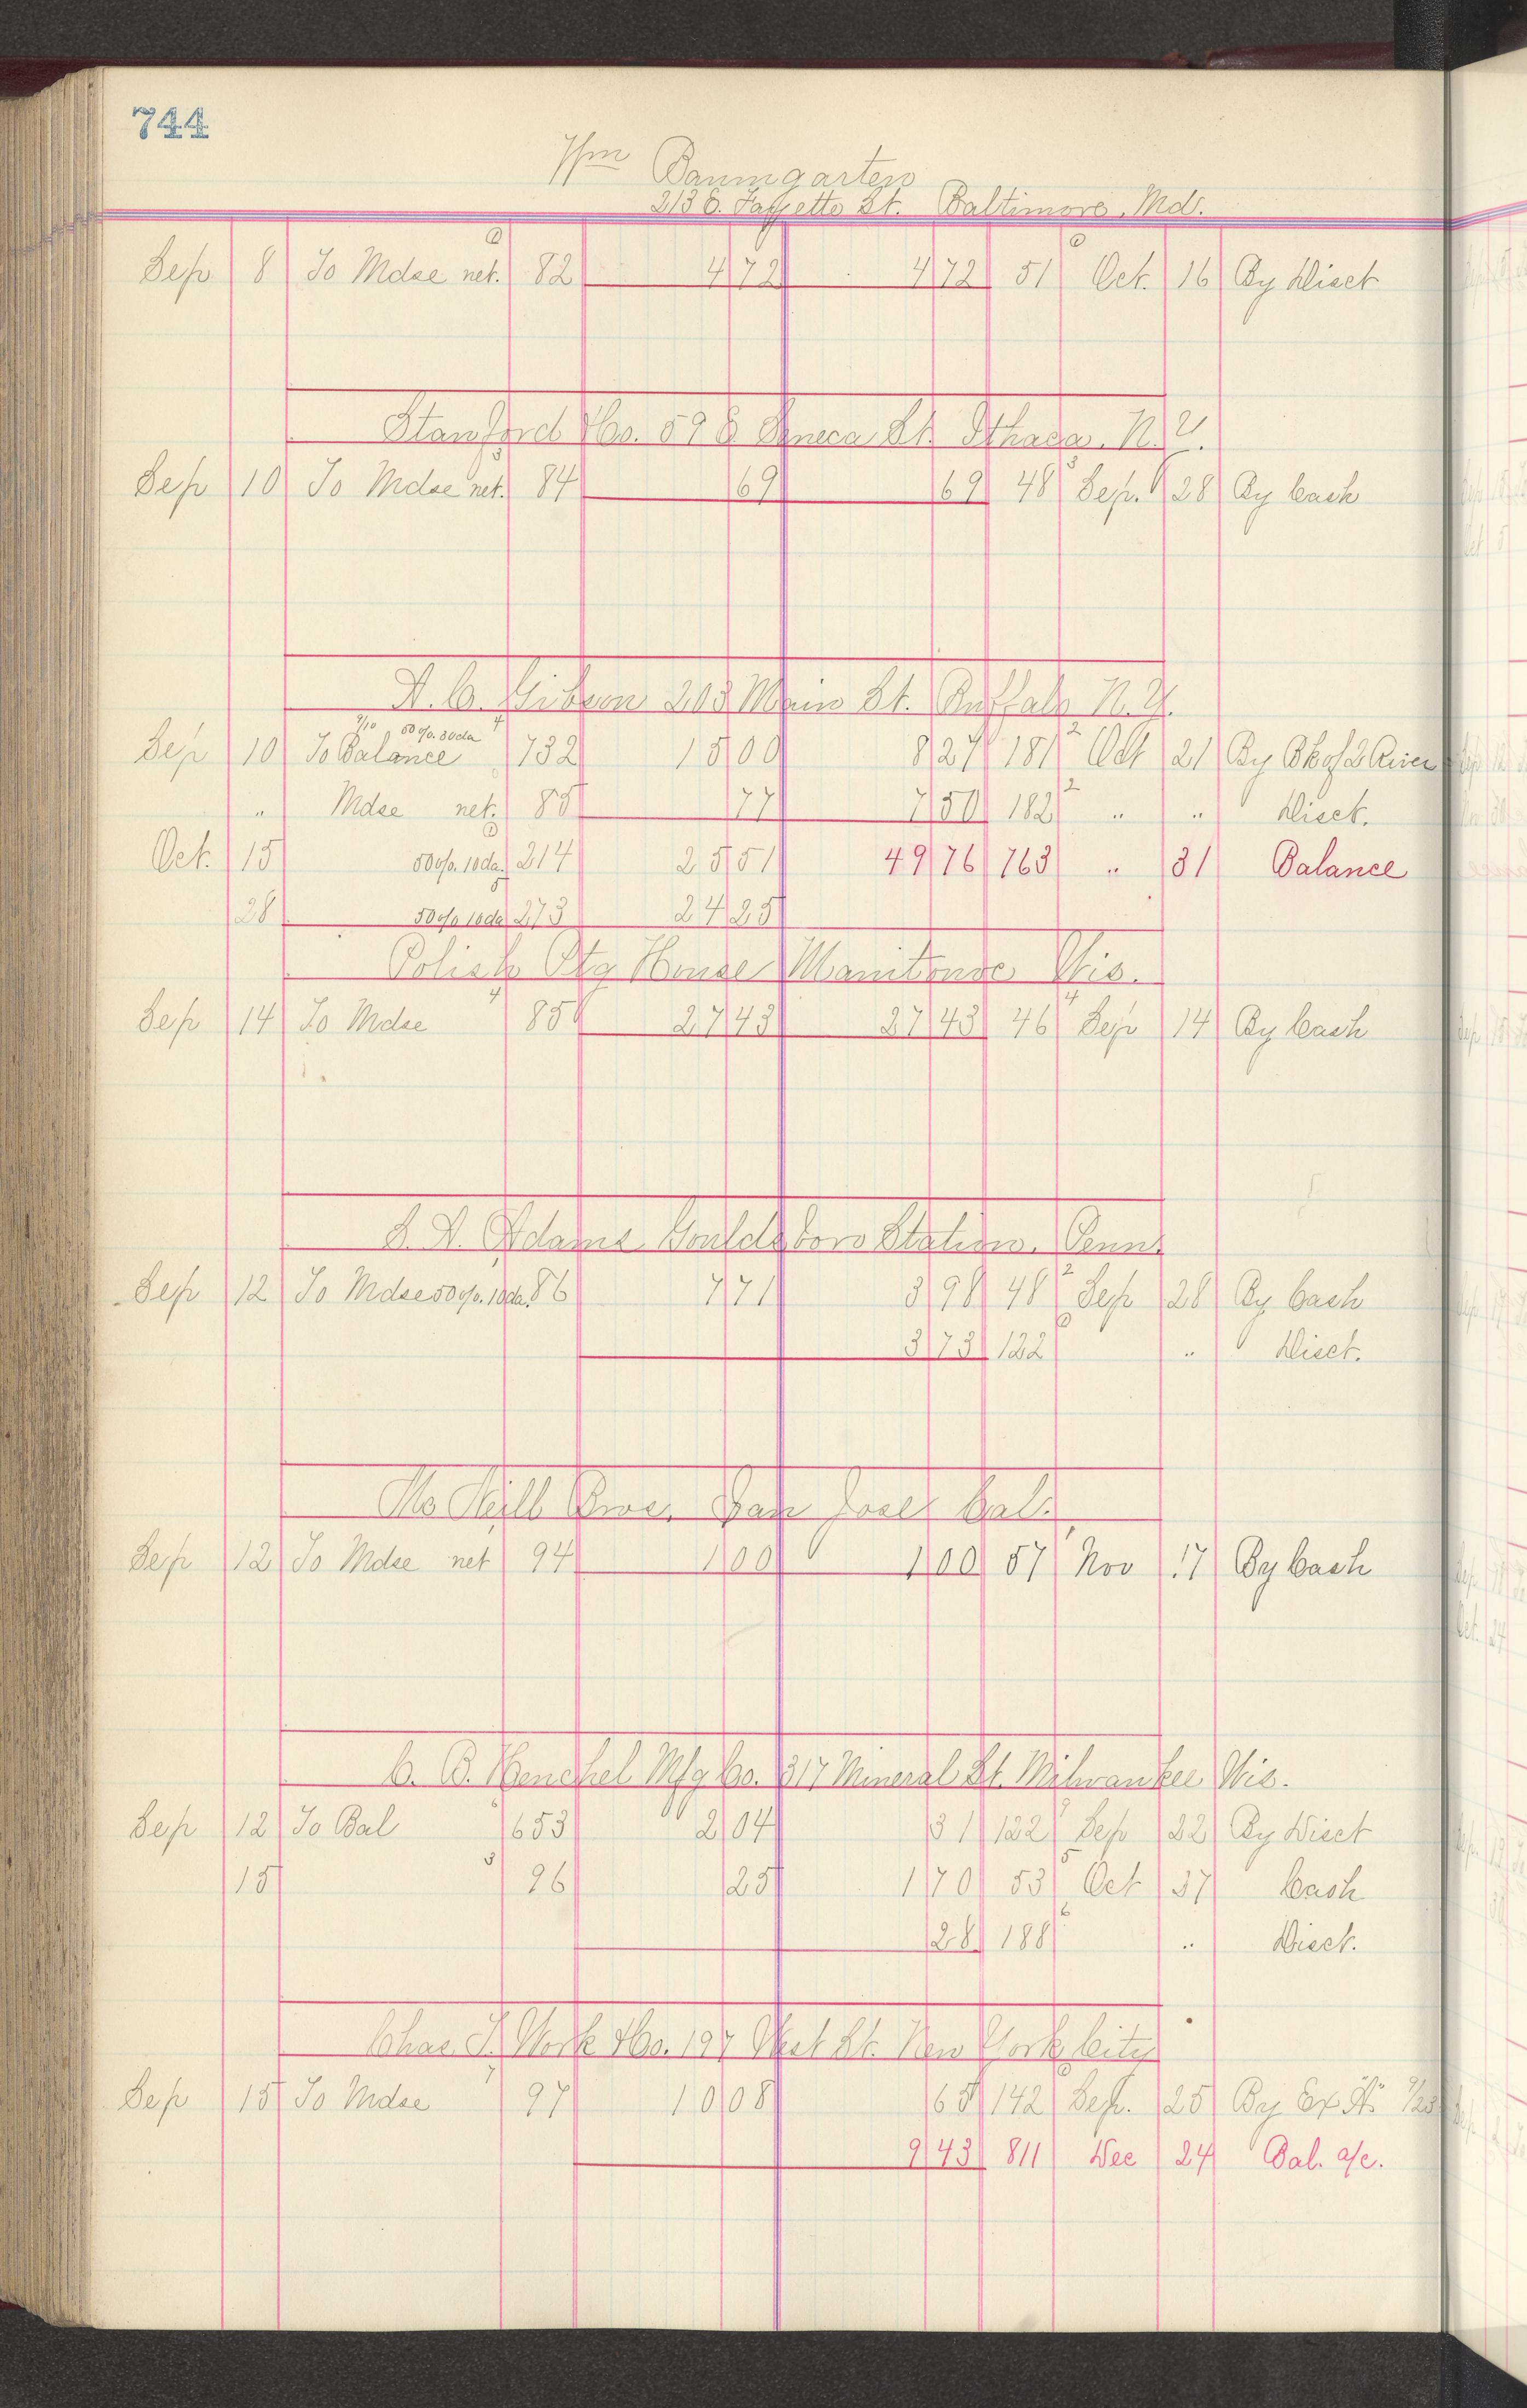 744
Wm Baumgarten
213 E. Fayette St. Baltimore, Md.
Sep 8 To Mdse net. 82 4 72 4 72 51 Oct. 16 By Disct
Stanford & Co. 59 E Seneca St. Ithaca. N.Y.
Sep 10 To Mdse net. 84 69 69 48 Sep. 28 By Cash
H. C. Gibson 203 Main St. Buffalo N.Y.
9/10 50%. 30da 4
Sep 10 To Balance 732 15 00 8 27 181 2 Oct 21 By Bk of
" Mdse net. 85 77 7 50 182 2 " " Disct.
Oct. 15 50%. 10da. 214 25 51 49 76 763 " 31 Balance
28 50% 10da 273 24 25
Polish Ptg House Manitowoc Wis.
Sep 14 To Mdse 4 85 27 43 27 43 46 4 Sep 14 By Cash
S. H. Adams Gouldsboro Station. Penn.
Sep 12 To Mdse 50%. 10da. 86 7 71 3 98 48 2 Sep 28 By Cash
3 73 122 " Disct.
Bros. San Jose Cal.
Sep 12 To Mdse net 94 1 00 1 00 57 Nov 17 By Cash
C. B. Henschel Mfg Co. 317 Mineral St. Milwaukee Wis.
Sep 12 To Bal 653 2 04 31 122 Sep 22 By Disct
15 3 96 25 1 70 53 5 Oct 37 Cash
28 188 6 " Disct.
Chas T. Work & Co. 197 West St. New York City
Sep 15 To Mdse 7 97 10 08 65 142 Sep. 25 By Ex
9 43 811 Dec 24 Bal. a/c.